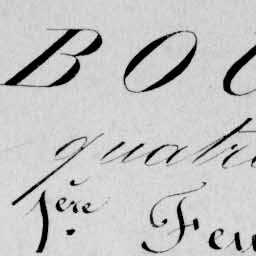 BO
quatr
1ère Feu